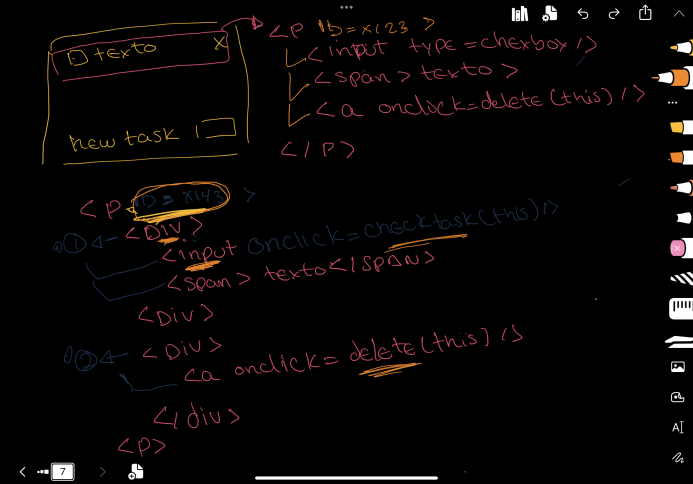 texto X
new task
<P ID=x123>
<input type=chexbox/>
<span> texto >
<a onclick=delete(this)/>
</P>
<P ID=x143 >
<DIV>
① <input onclick=checktask(this)/>
<span> texto</SPAN>
<DIV>
② <DIV>
<a onclick= delete(this)/>
</div>
<P>
7
AI